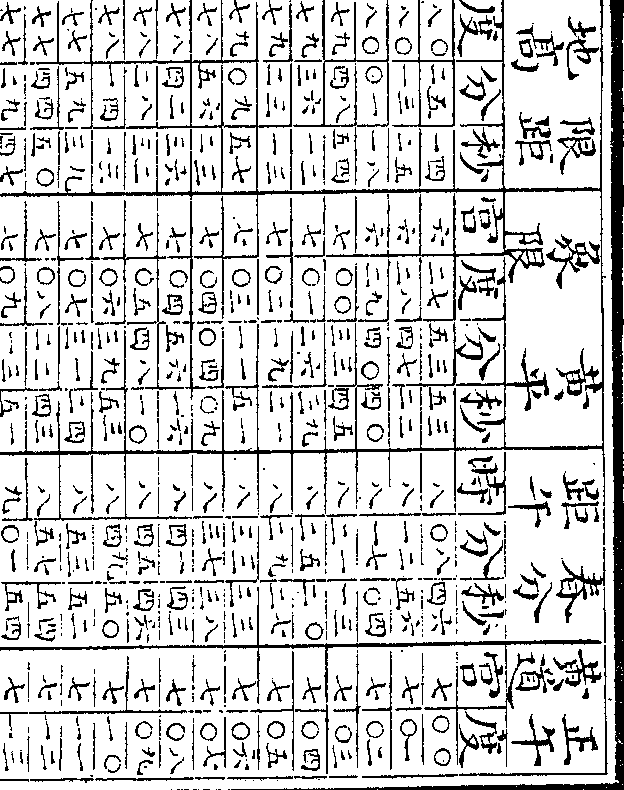 限距地高 黃平象限 春分距午 正午黃道
度 分 秒 宮 度 分 秒 時 分 秒 宮 度
八〇 二五 一四 六 二七 五三 五三 八 〇八 四六 七 〇〇
八〇 一三 二五 六 二八 四七 二二 八 一二 五六 七 〇一
八〇 〇一 一八 六 二九 四〇 四〇 八 一七 〇四 七 〇二
七九 四八 五四 七 〇〇 三三 四五 八 二一 一三 七 〇三
七九 三六 一二 七 〇一 二六 三九 八 二五 二〇 七 〇四
七九 二三 一三 七 〇二 一九 二一 八 二九 二七 七 〇五
七九 〇九 五七 七 〇三 一一 五一 八 三三 三二 七 〇六
七八 五六 二三 七 〇四 〇四 〇九 八 三七 三八 七 〇七
七八 四二 三六 七 〇四 五六 一六 八 四一 四三 七 〇八
七八 二八 三二 七 〇五 四八 一〇 八 四五 四六 七 〇九
七八 一四 一三 七 〇六 三九 五三 八 四九 五〇 七 一〇
七七 五九 三八 七 〇七 三一 二四 八 五三 五二 七 一一
七七 四四 五〇 七 〇八 二二 四三 八 五七 五四 七 一二
七七 二九 四七 七 〇九 一三 五一 九 〇一 五四 七 一三